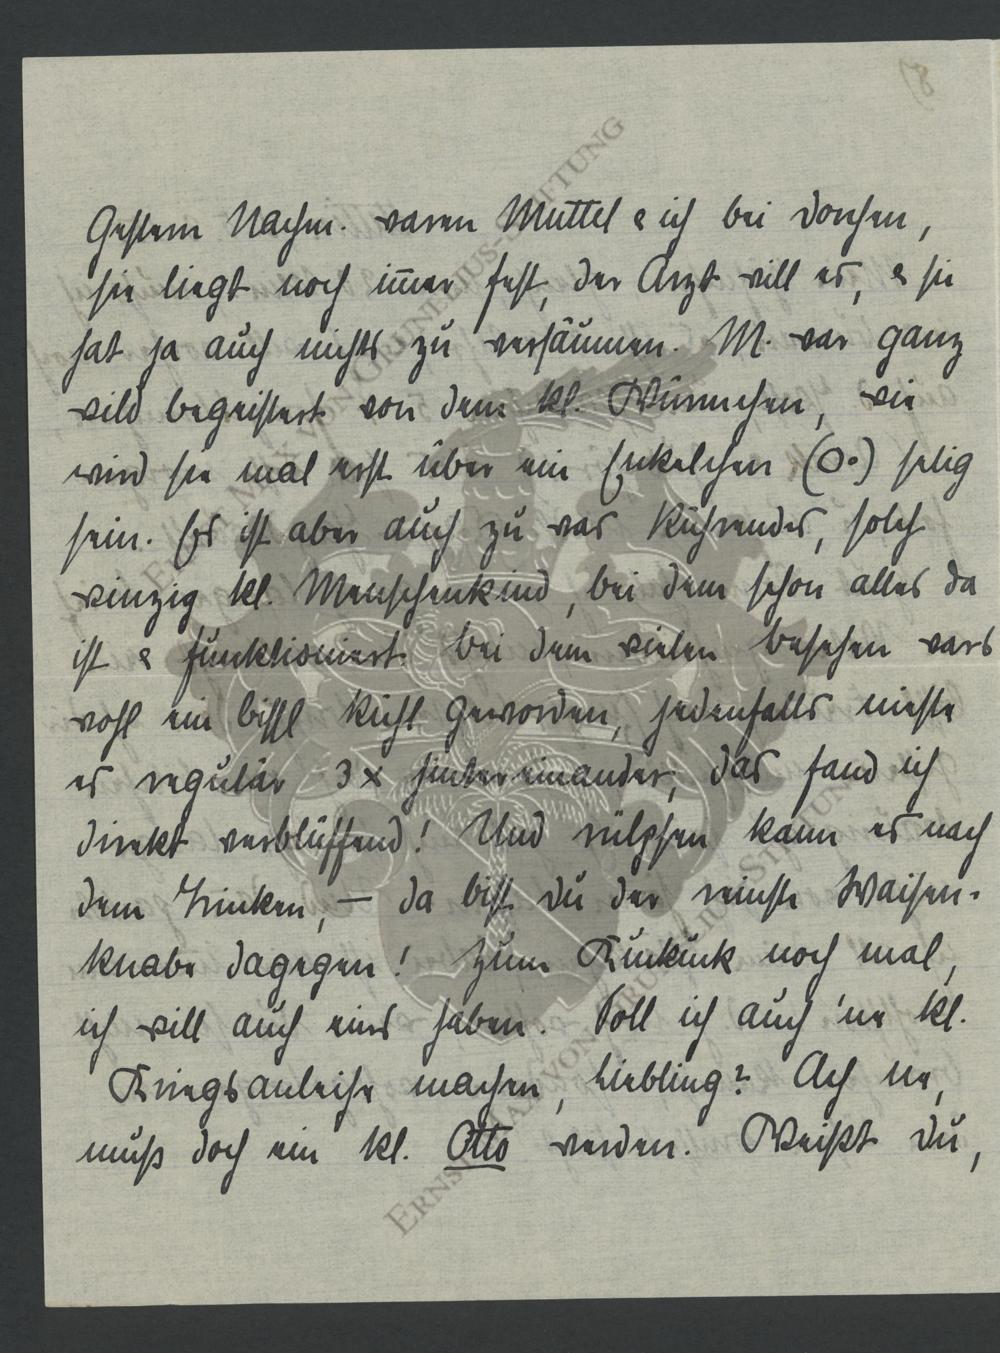 8)
Gestern Nachm. waren Muttel & ich bei Dorchen,
sie liegt noch im̅er fest, der Arzt will es, & sie
hat ja auch nichts zu versäumen. M. war ganz
wild begeistert von dem kl. Würmchen, wie
wird sie mal erst über ein Enkelchen (O.) selig
sein. Es ist aber auch zu was Rührendes, solch
winzig kl. Menschenkind, bei dem schon alles da
ist & funktioniert. Bei dem vielen besehen wars
wohl ein bissl kühl geworden, jedenfalls nieste
es regulär 3x hintereinander, das fand ich
direkt verblüffend! Und rülpsen kann es nach
dem Trinken, — da bist du der reinste Waisen-
knabe dagegen! Zum Kukuk noch mal,
ich will auch eins haben. Soll ich auch 'ne kl.
Kriegsanleihe machen, Liebling? Ach ne,
muß doch ein kl. Otto werden. Weißt du,
ERNST MAX VON GRUNELIUS-STIFTUNG
ERNST MAX VON GRUNELIUS-STIFTUNG